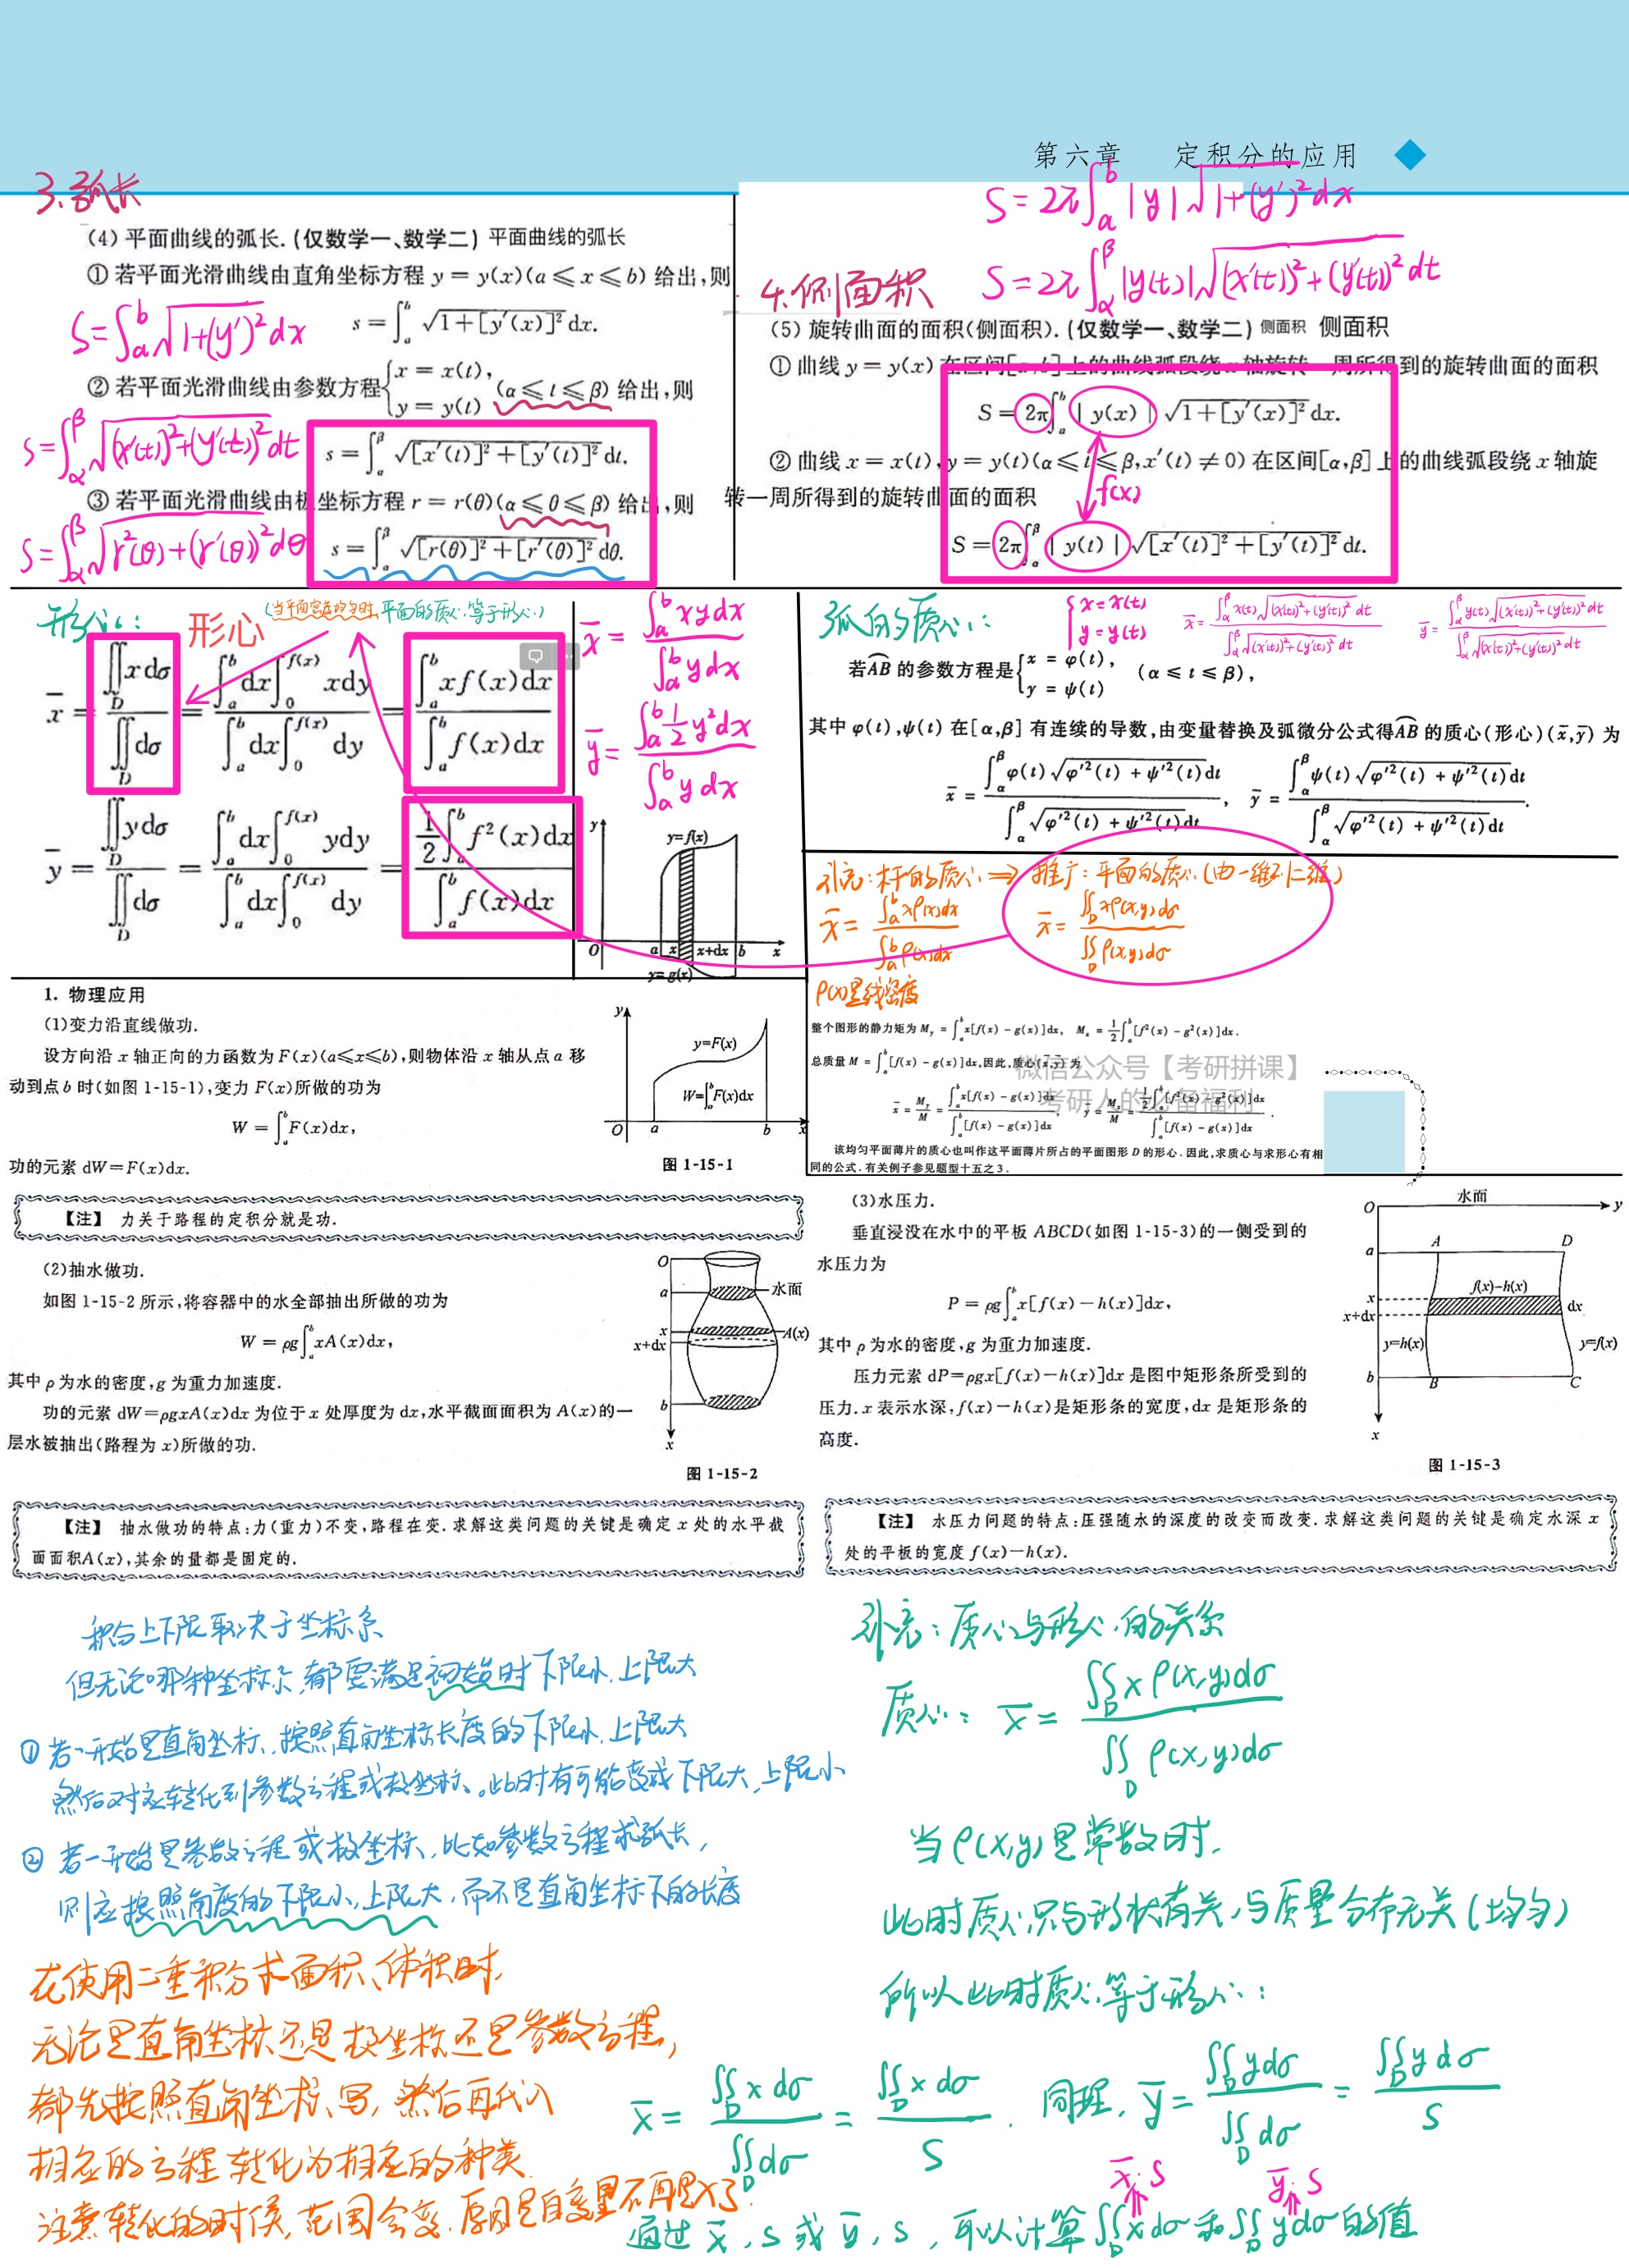 第六章 定积分的应用
3.弧长
(4) 平面曲线的弧长.(仅数学一、数学二) 平面曲线的弧长
① 若平面光滑曲线由直角坐标方程 y = y(x)(a ≤ x ≤ b) 给出,则
S=∫_a^b √(1+(y')²) dx
s = ∫_a^b √(1+[y'(x)]²) dx.
② 若平面光滑曲线由参数方程 {x = x(t), y = y(t) (α ≤ t ≤ β) 给出,则
S=∫_α^β √((x'(t))²+(y'(t))²) dt
s = ∫_α^β √([x'(t)]²+[y'(t)]²) dt.
③ 若平面光滑曲线由极坐标方程 r = r(θ)(α ≤ θ ≤ β) 给出,则
S=∫_α^β √(r²(θ)+(r'(θ))²) dθ
s = ∫_α^β √([r(θ)]²+[r'(θ)]²) dθ.
S=2π∫_a^b |y|√(1+(y')²) dx
S=2π∫_α^β |y(t)|√((x'(t))²+(y'(t))²) dt
4.侧面积
(5) 旋转曲面的面积(侧面积).(仅数学一、数学二) 侧面积 侧面积
① 曲线 y = y(x) 在区间[a,b]上的曲线弧段绕 x 轴旋转一周所得到的旋转曲面的面积
S = 2π∫_a^b |y(x)| √(1+[y'(x)]²) dx.
② 曲线 x = x(t), y = y(t)(α ≤ t ≤ β, x'(t) ≠ 0) 在区间[α,β]上的曲线弧段绕 x 轴旋
f(x)
转一周所得到的旋转曲面的面积
S = 2π∫_α^β |y(t)| √([x'(t)]²+[y'(t)]²) dt.
形心:
形心
(当平面密度均匀时,平面的质心等于形心)
x̄ = ∬_D x dσ / ∬_D dσ = ∫_a^b dx∫_0^{f(x)} x dy / ∫_a^b dx∫_0^{f(x)} dy = ∫_a^b x f(x)dx / ∫_a^b f(x)dx
ȳ = ∬_D y dσ / ∬_D dσ = ∫_a^b dx∫_0^{f(x)} y dy / ∫_a^b dx∫_0^{f(x)} dy = ½∫_a^b f²(x)dx / ∫_a^b f(x)dx
x̄ = ∫_a^b xy dx / ∫_a^b y dx
ȳ = ∫_a^b ½y² dx / ∫_a^b y dx
y y=f(x)
O a x x+dx b x
y=g(x)
弧的质心:
{x=x(t) y=y(t)
x̄ = ∫_α^β x(t)√((x'(t))²+(y'(t))²) dt / ∫_α^β √((x'(t))²+(y'(t))²) dt
ȳ = ∫_α^β y(t)√((x'(t))²+(y'(t))²) dt / ∫_α^β √((x'(t))²+(y'(t))²) dt
若AB 的参数方程是 {x = φ(t), y = ψ(t) (α ≤ t ≤ β),
其中 φ(t),ψ(t) 在[α,β] 有连续的导数,由变量替换及弧微分公式得AB 的质心(形心)(x̄,ȳ) 为
x̄ = ∫_α^β φ(t)√(φ'²(t) + ψ'²(t))dt / ∫_α^β √(φ'²(t) + ψ'²(t))dt, ȳ = ∫_α^β ψ(t)√(φ'²(t) + ψ'²(t))dt / ∫_α^β √(φ'²(t) + ψ'²(t))dt.
补充:杆的质心 ⇒ 推广:平面的质心(由一维到二维)
x̄ = ∫_a^b xρ(x)dx / ∫_a^b ρ(x)dx
x̄ = ∬_D xρ(x,y)dσ / ∬_D ρ(x,y)dσ
ρ(x)是线密度
整个图形的静力矩为 M_y = ∫_a^b x[f(x) − g(x)]dx, M_x = ½∫_a^b [f²(x) − g²(x)]dx.
总质量 M = ∫_a^b [f(x) − g(x)]dx,因此,质心(x̄,ȳ)为
微信公众号【考研拼课】
考研人的必备福利
x̄ = M_y/M = ∫_a^b x[f(x) − g(x)]dx / ∫_a^b [f(x) − g(x)]dx, ȳ = M_x/M = ½∫_a^b [f²(x) − g²(x)]dx / ∫_a^b [f(x) − g(x)]dx.
该均匀平面薄片的质心也叫作这平面薄片所占的平面图形 D 的形心.因此,求质心与求形心有相
同的公式.有关例子参见题型十五之3.
1. 物理应用
(1)变力沿直线做功.
设方向沿 x 轴正向的力函数为 F(x)(a≤x≤b),则物体沿 x 轴从点 a 移
动到点 b 时(如图 1-15-1),变力 F(x)所做的功为
W = ∫_a^b F(x)dx,
功的元素 dW=F(x)dx.
y
y=F(x)
W=∫_a^b F(x)dx
O a b x
图 1-15-1
【注】 力关于路程的定积分就是功.
(2)抽水做功.
如图 1-15-2 所示,将容器中的水全部抽出所做的功为
W = ρg∫_a^b xA(x)dx,
其中 ρ 为水的密度,g 为重力加速度.
功的元素 dW=ρgxA(x)dx 为位于 x 处厚度为 dx,水平截面面积为 A(x)的一
层水被抽出(路程为 x)所做的功.
O
a 水面
x A(x)
x+dx
b
x
图 1-15-2
【注】 抽水做功的特点:力(重力)不变,路程在变.求解这类问题的关键是确定 x 处的水平截
面面积A(x),其余的量都是固定的.
(3)水压力.
垂直浸没在水中的平板 ABCD(如图 1-15-3)的一侧受到的
水压力为
P = ρg∫_a^b x[f(x)−h(x)]dx,
其中 ρ 为水的密度,g 为重力加速度.
压力元素 dP=ρgx[f(x)−h(x)]dx 是图中矩形条所受到的
压力.x 表示水深,f(x)−h(x)是矩形条的宽度,dx 是矩形条的
高度.
O 水面 y
a A D
x f(x)−h(x) dx
x+dx
y=h(x) y=f(x)
b B C
x
图 1-15-3
【注】 水压力问题的特点:压强随水的深度的改变而改变.求解这类问题的关键是确定水深 x
处的平板的宽度 f(x)−h(x).
积分上下限取决于坐标系
但无论哪种坐标系,都要满足初始时下限小,上限大
① 若一开始是直角坐标,按照直角坐标长度的下限小,上限大
然后对应转化到参数方程或极坐标。此时有可能变成下限大,上限小
② 若一开始是参数方程或极坐标,比如参数方程求弧长,
则应按照角度的下限小,上限大,而不是直角坐标下的长度
在使用二重积分求面积、体积时,
无论是直角坐标还是极坐标还是参数方程,
都先按照直角坐标写,然后再代入
相应的方程转化为相应的种类.
注意转化的时候,范围会变.原因是自变量不再是x了.
补充:质心与形心的关系
质心: x̄ = ∬_D xρ(x,y)dσ / ∬_D ρ(x,y)dσ
当ρ(x,y)是常数时,
此时质心只与形状有关,与质量分布无关(均匀)
所以此时质心等于形心:
x̄ = ∬_D x dσ / ∬_D dσ = ∬_D x dσ / S . 同理, ȳ = ∬_D y dσ / ∬_D dσ = ∬_D y dσ / S
x̄·S ȳ·S
通过 x̄,S 或 ȳ,S,可以计算∬_D x dσ 和∬_D y dσ 的值